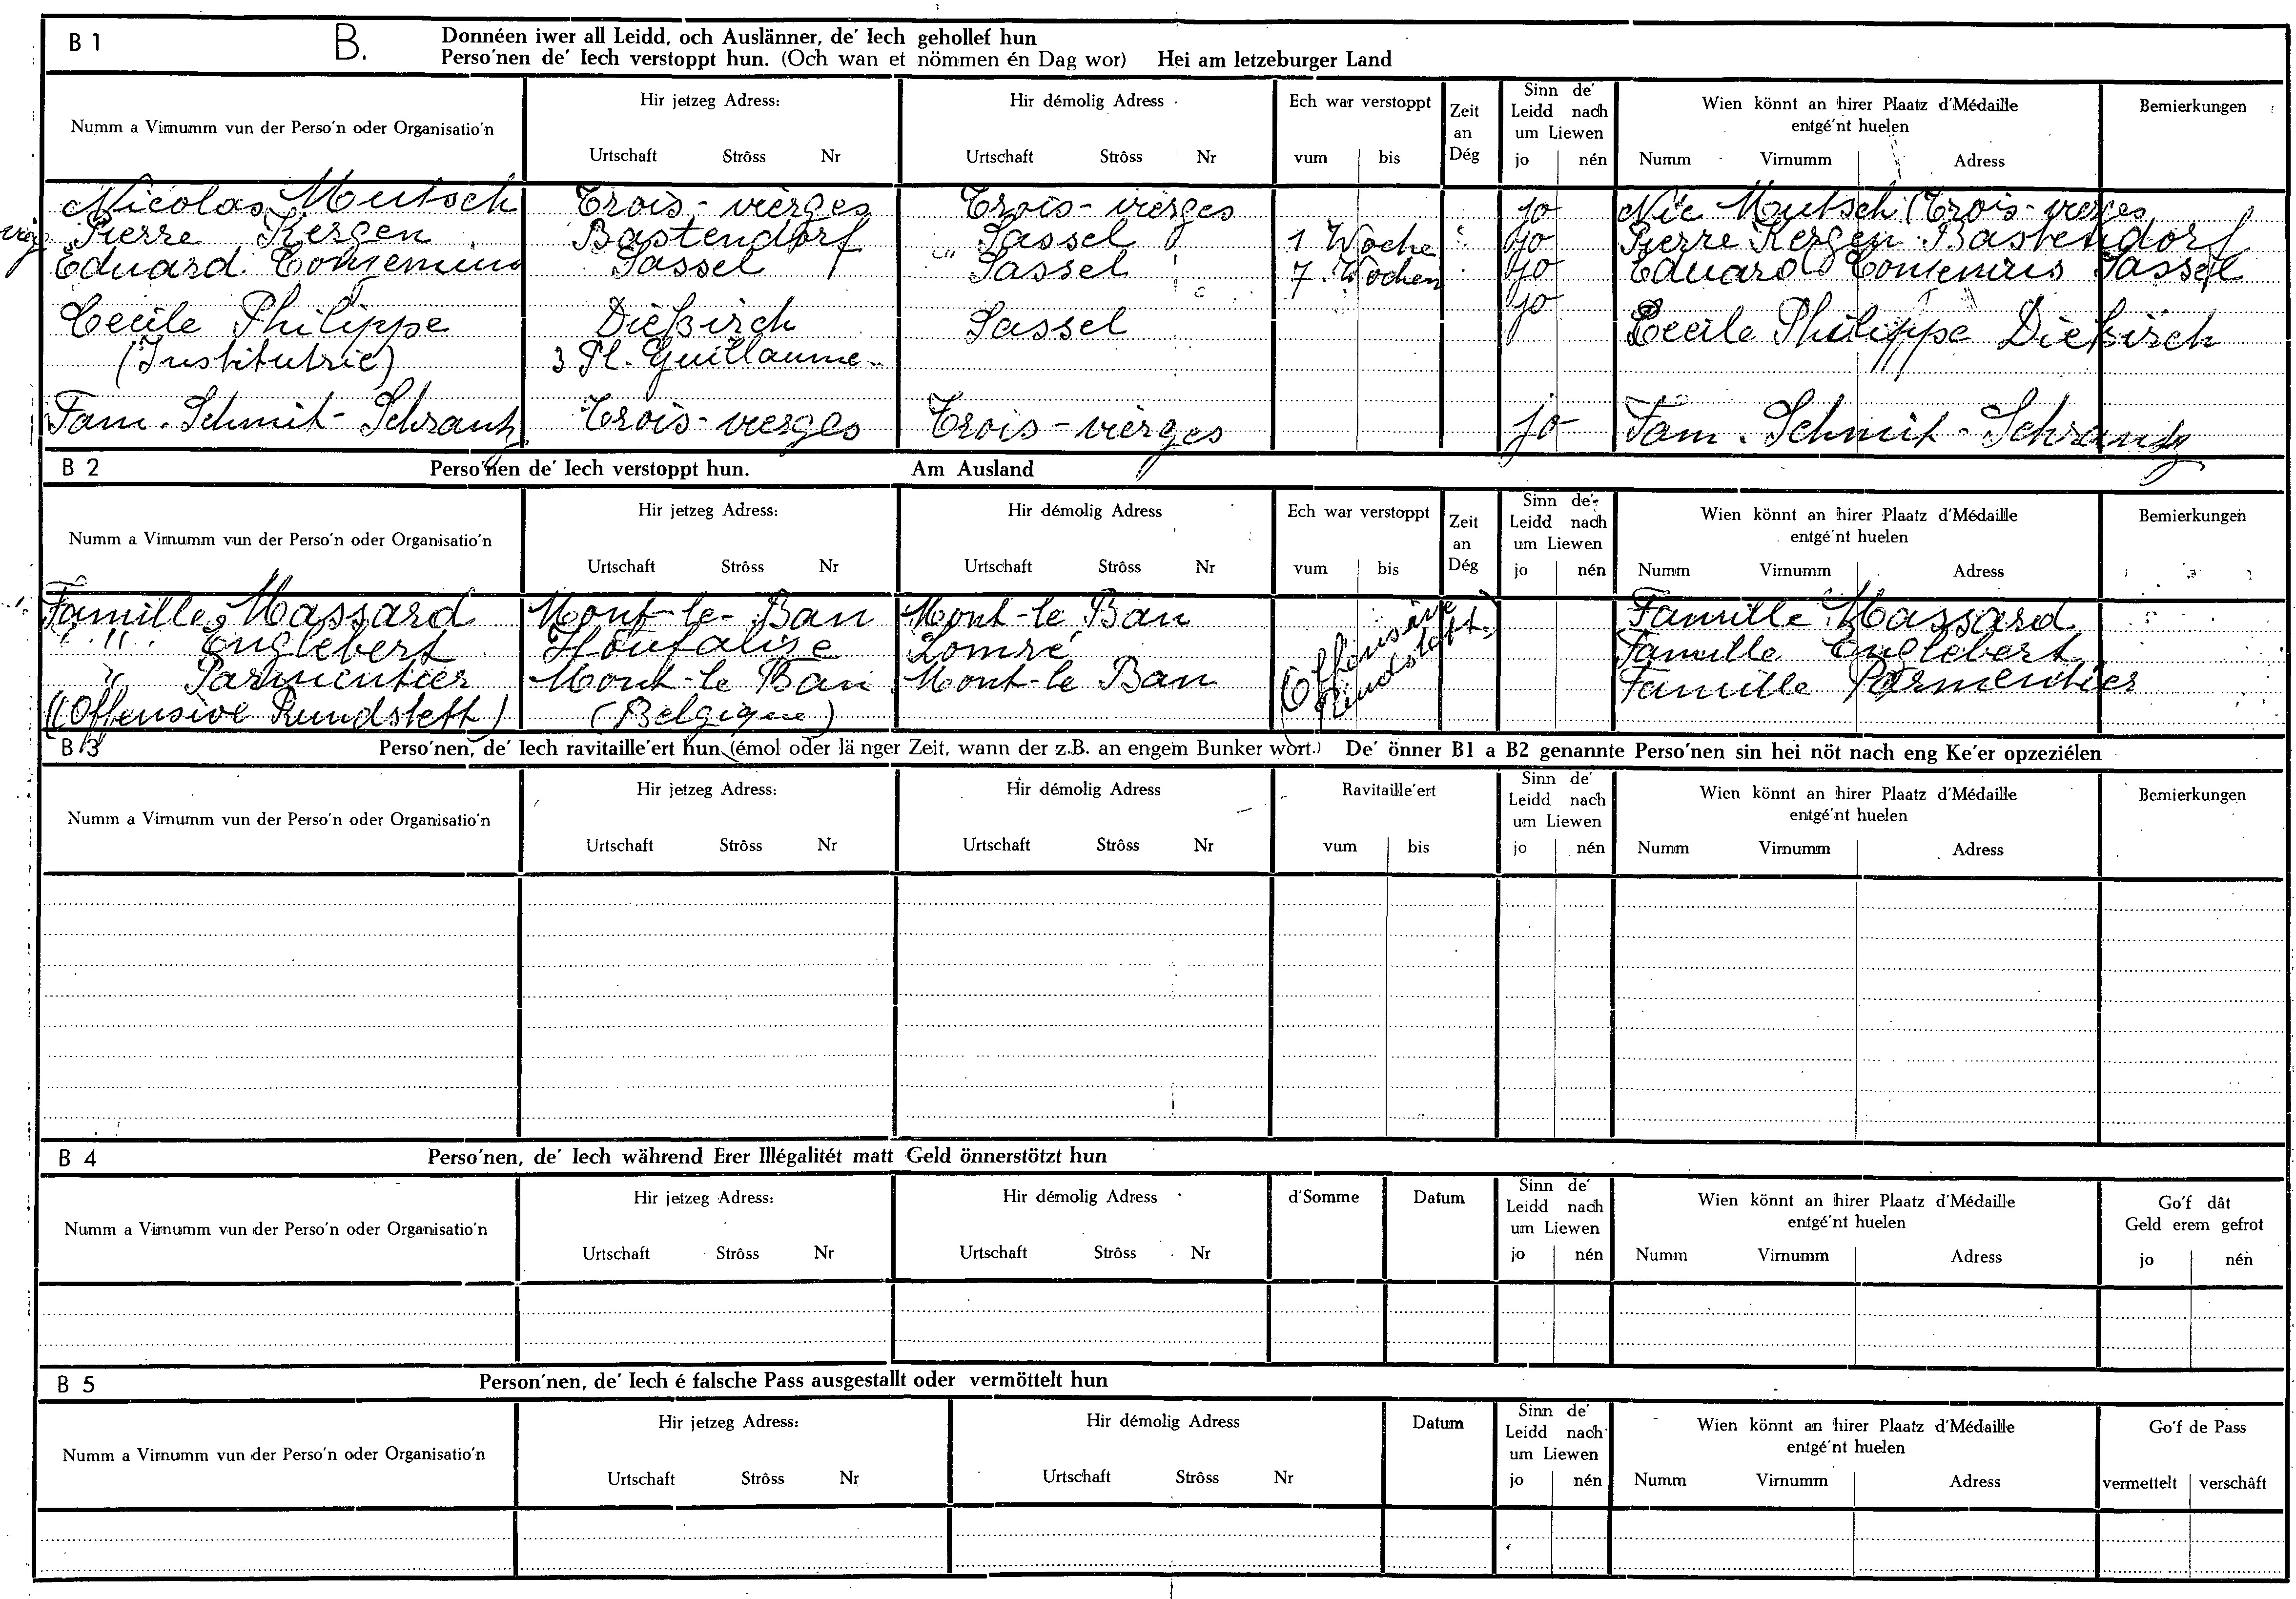 B 1 B. Donnéen iwer all Leidd, och Auslänner, de' Iech gehollef hun
Perso'nen de' Iech verstoppt hun. (Och wan et nömmen én Dag wor) Hei am letzeburger Land
Numm a Virnumm vun der Perso'n oder Organisatio'n Hir jetzeg Adress: Urtschaft Strôss Nr Hir démolig Adress Urtschaft Strôss Nr Ech war verstoppt vum bis Zeit an Dég Sinn de' Leidd nach um Liewen jo nén Wien könnt an hirer Plaatz d'Médaille entgé'nt huelen Numm Virnumm Adress Bemierkungen
Nicolas Mutsch Trois-vierges Trois-vierges jo Nic Mutsch (Trois-vierges
Pierre Kergen Bastendorf Sassel 1 Woche jo Pierre Kergen Bastendorf
Eduard Sassel " Sassel 7 Wochen jo Eduard Sassel
Cecile Philippe Diekirch Sassel jo Cecile Philippe Diekirch
(Institutric) 3 Pl. Guillaume
Fam. Schmit-Schrantz Trois-vierges Trois-vierges jo Fam. Schmit-Schrantz
B 2 Perso'nen de' Iech verstoppt hun. Am Ausland
Numm a Virnumm vun der Perso'n oder Organisatio'n Hir jetzeg Adress: Urtschaft Strôss Nr Hir démolig Adress Urtschaft Strôss Nr Ech war verstoppt vum bis Zeit an Dég Sinn de' Leidd nach um Liewen jo nén Wien könnt an hirer Plaatz d'Médaille entgé'nt huelen Numm Virnumm Adress Bemierkungen
Famille Massard Mont-le-Ban Mont-le Ban (Offensive Rundstett) Famille Massard
" Englebert Houfalise Lomré Famille Englebert
" Parmentier Mont-le Ban Mont-le Ban Famille Parmentier
(Offensive Rundstett) (Belgique)
B 3 Perso'nen, de' Iech ravitaille'ert hun (émol oder länger Zeit, wann der z.B. an engem Bunker wort.) De' önner B1 a B2 genannte Perso'nen sin hei nöt nach eng Ke'er opzeziélen
Numm a Virnumm vun der Perso'n oder Organisatio'n Hir jetzeg Adress: Urtschaft Strôss Nr Hir démolig Adress Urtschaft Strôss Nr Ravitaille'ert vum bis Sinn de' Leidd nach um Liewen jo nén Wien könnt an hirer Plaatz d'Médaille entgé'nt huelen Numm Virnumm Adress Bemierkungen
B 4 Perso'nen, de' Iech während Erer Illégalitét matt Geld önnerstötzt hun
Numm a Virnumm vun der Perso'n oder Organisatio'n Hir jetzeg Adress: Urtschaft Strôss Nr Hir démolig Adress Urtschaft Strôss Nr d'Somme Datum Sinn de' Leidd nach um Liewen jo nén Wien könnt an hirer Plaatz d'Médaille entgé'nt huelen Numm Virnumm Adress Go'f dât Geld erem gefrot jo nén
B 5 Person'nen, de' Iech é falsche Pass ausgestallt oder vermöttelt hun
Numm a Virnumm vun der Perso'n oder Organisatio'n Hir jetzeg Adress: Urtschaft Strôss Nr Hir démolig Adress Urtschaft Strôss Nr Datum Sinn de' Leidd nach um Liewen jo nén Wien könnt an hirer Plaatz d'Médaille entgé'nt huelen Numm Virnumm Adress Go'f de Pass vermettelt verschâft